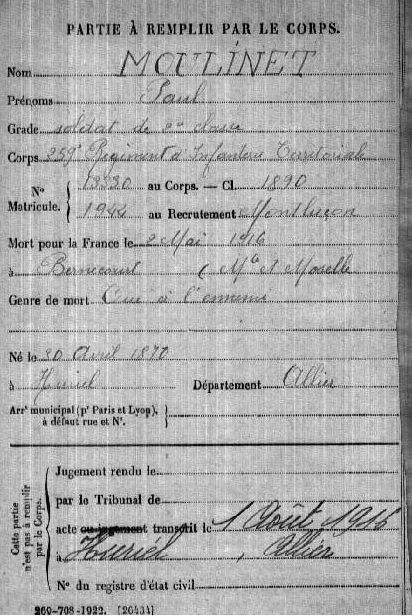 PARTIE À REMPLIR PAR LE CORPS.
Nom MOULINET
Prénoms Paul
Grade soldat de 2e classe
Corps 259e Régiment d'Infanterie Territorial
N° Matricule. { 13330 au Corps. — Cl. 1890
1944 au Recrutement Montluçon
Mort pour la France le 2 Mai 1916
à Bernecourt (Mthe et Moselle
Genre de mort Tué à l'ennemi
Né le 30 Avril 1870
à Huriel Département Allier
Arrt municipal (pr Paris et Lyon), à défaut rue et N°. {
Cette partie n'est pas à remplir par le Corps.
Jugement rendu le
par le Tribunal de
acte ou jugement transcrit le 1 Août 1916
à Houriel, Allier
N° du registre d'état civil
269-708-1922. [26434]